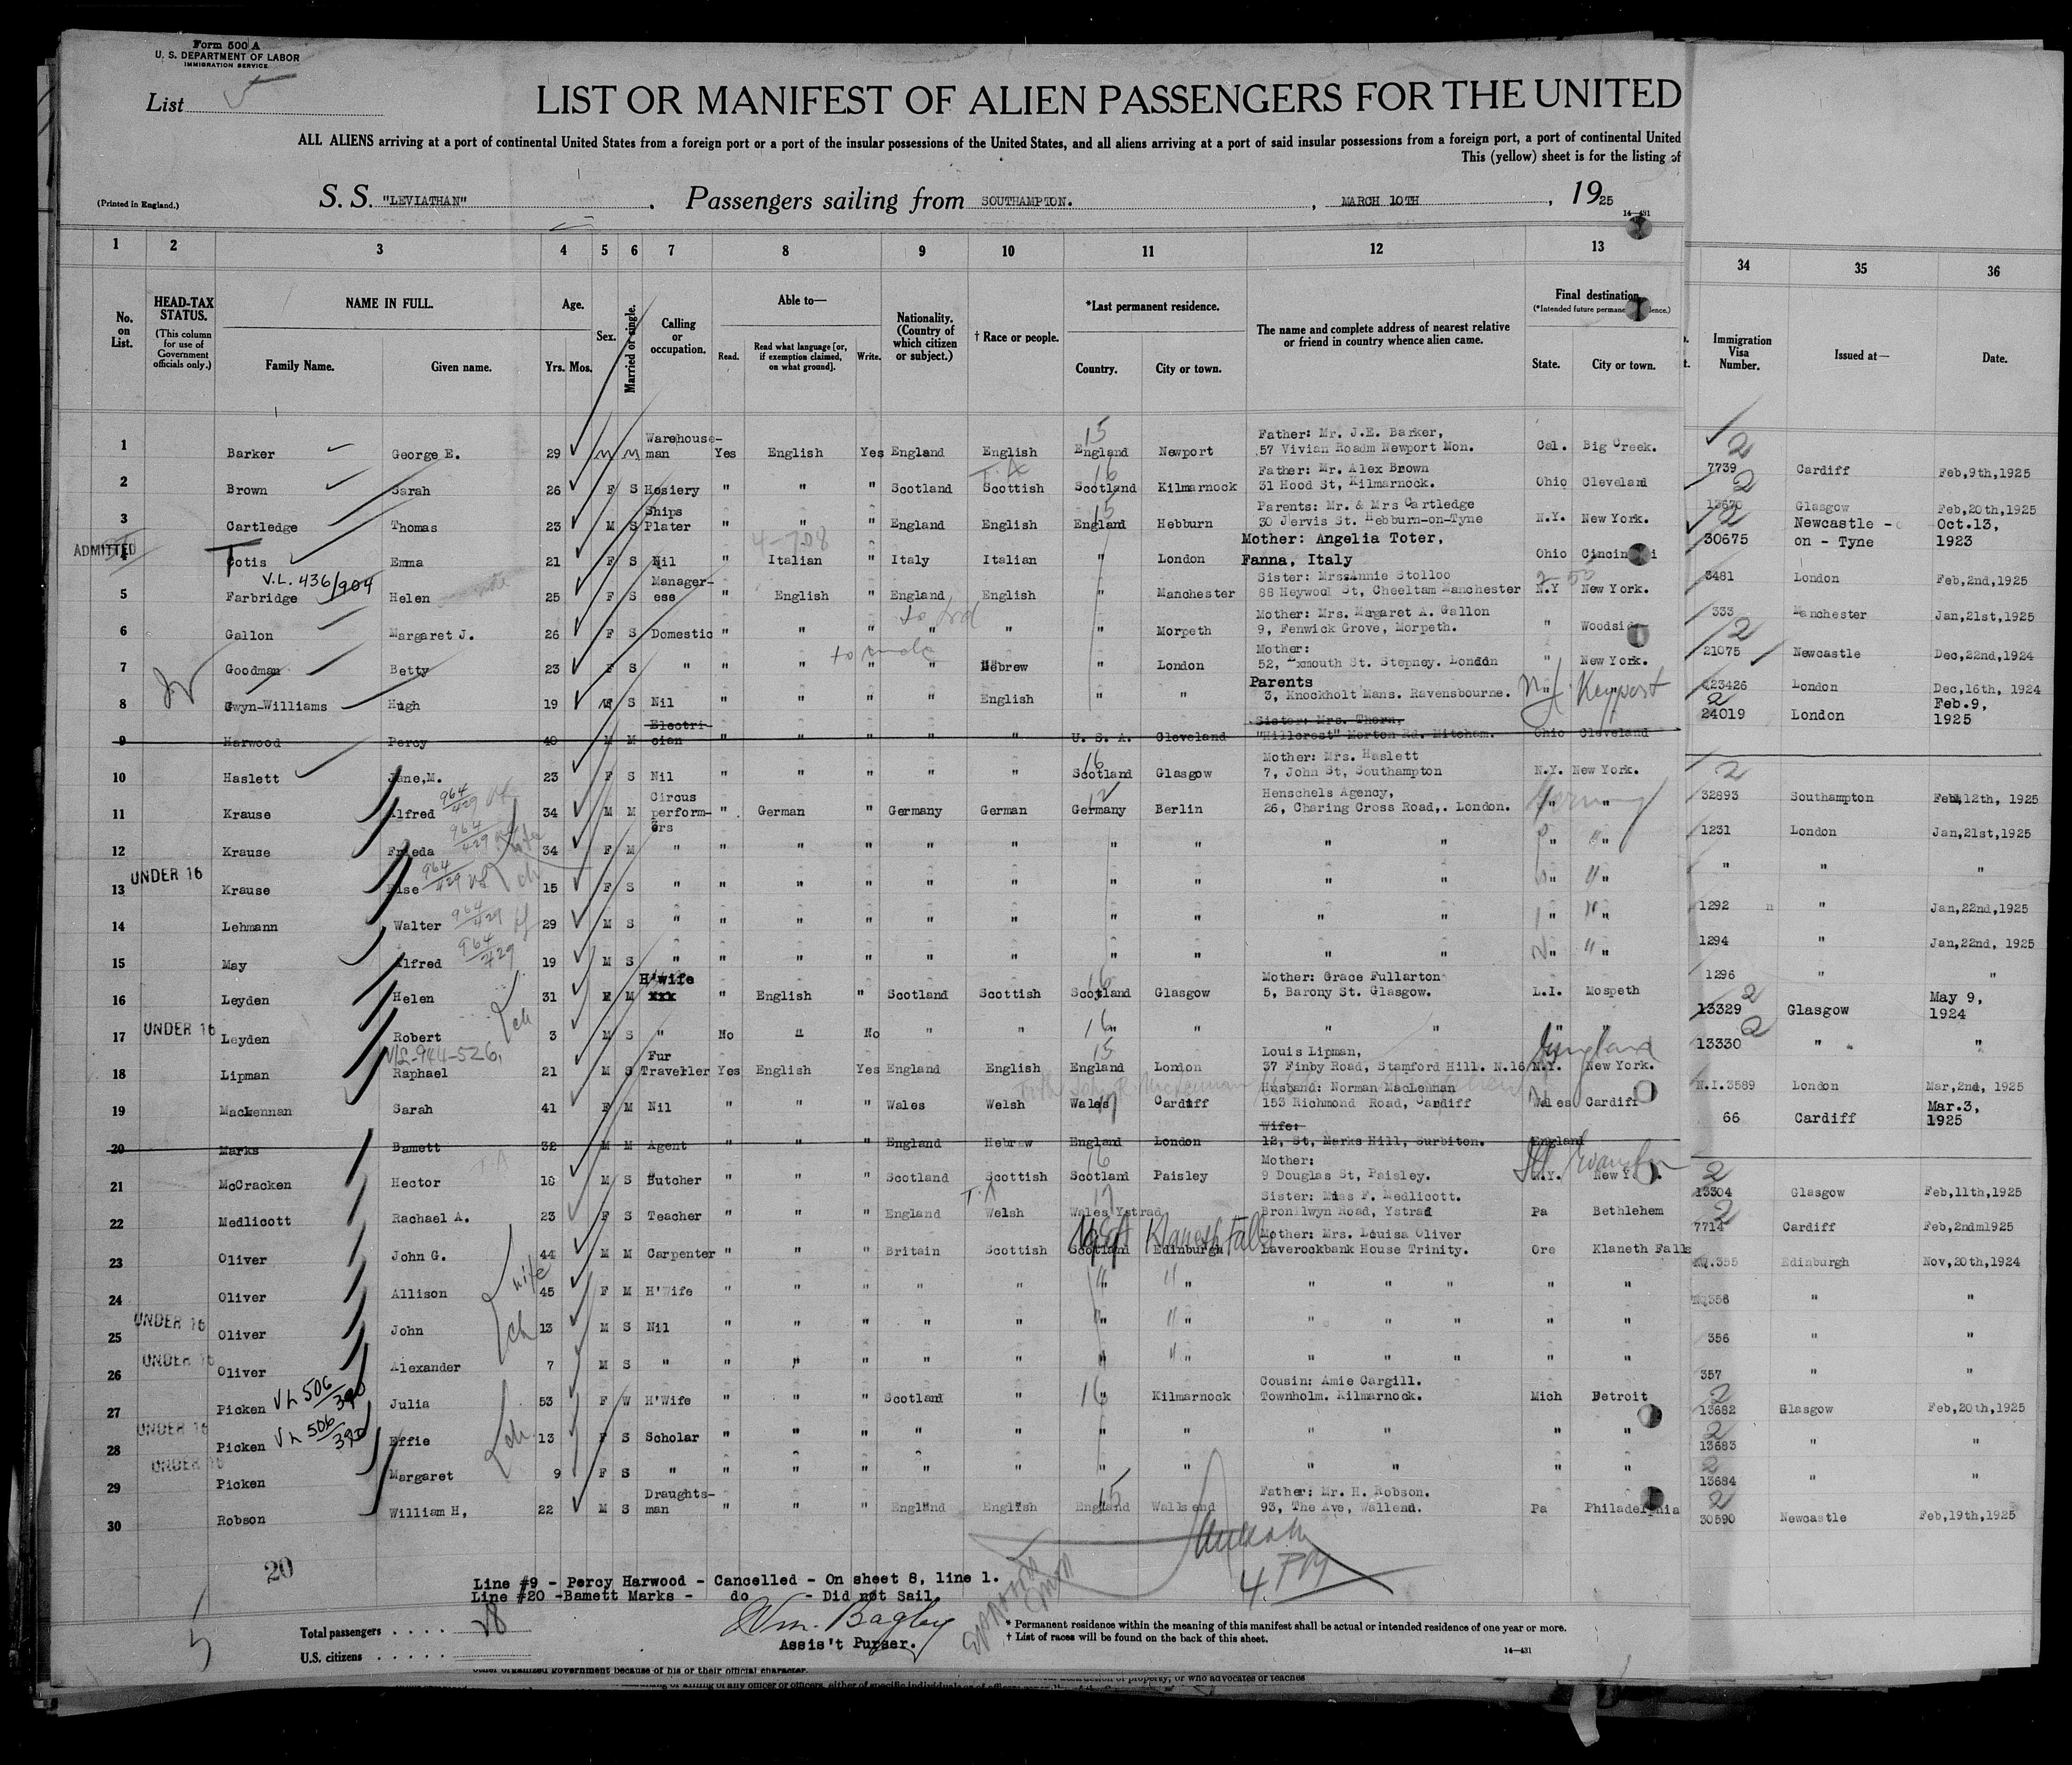 Form 500 A
U. S. DEPARTMENT OF LABOR
IMMIGRATION SERVICE
List 5
LIST OR MANIFEST OF ALIEN PASSENGERS FOR THE UNITED
ALL ALIENS arriving at a port of continental United States from a foreign port or a port of the insular possessions of the United States, and all aliens arriving at a port of said insular possessions from a foreign port, a port of continental United
This (yellow) sheet is for the listing of
(Printed in England.) S. S. "LEVIATHAN" . Passengers sailing from SOUTHAMPTON. , MARCH 10TH , 1925
14—431
1 2 3 4 5 6 7 8 9 10 11 12 13 34 35 36
No. on List. HEAD-TAX STATUS. (This column for use of Government officials only.) NAME IN FULL. Family Name. Given name. Age. Yrs. Mos. Sex. Married or single. Calling or occupation. Able to— Read. Read what language [or, if exemption claimed, on what ground]. Write. Nationality. (Country of which citizen or subject.) † Race or people. *Last permanent residence. Country. City or town. The name and complete address of nearest relative or friend in country whence alien came. Final destination. (*Intended future permane lence.) State. City or town. Immigration Visa Number. Issued at— Date.
1 Barker George E. 29 M M Warehouse-man Yes English Yes England English 15 England Newport Father: Mr. J.E. Barker, 57 Vivian Roadm Newport Mon. Cal. Big Creek. 2 7739 Cardiff Feb,9th,1925
2 Brown Sarah 26 F S Hosiery " " " Scotland T.A Scottish 16 Scotland Kilmarnock Father: Mr. Alex Brown 31 Hood St, Kilmarnock. Ohio Cleveland 2 13670 Glasgow Feb,20th,1925
3 Cartledge Thomas 23 M S Ships Plater " " " England English 15 England Hebburn Parents: Mr. & Mrs Cartledge 30 Jervis St. Hebburn-on-Tyne N.Y. New York. 2 30675 Newcastle - on - Tyne Oct.13, 1923
ADMITTED 4 T Cotis Emma 21 F S Nil " 4-708 Italian " Italy Italian " London Mother: Angelia Toter, Fanna, Italy Ohio Cincin i 3481 London Feb,2nd,1925
5 V.L. 436/904 Farbridge Helen 25 F S Manager-ess " English " England English " Manchester Sister: MrssAnnie Stolloo 88 Heywood St, Cheeltam Manchester N.Y New York. 333 Manchester Jan,21st,1925
6 Gallon Margaret J. 26 F S Domestic " " " " " " Morpeth Mother: Mrs. Margaret A. Gallon 9, Fenwick Grove, Morpeth. " Woodside 2 21075 Newcastle Dec,22nd,1924
7 Goodman Betty 23 F S " " " " " Hebrew " London Mother: 52, Exmouth St. Stepney. London " New York. 23426 London Dec,16th, 1924
8 Gwyn-Williams Hugh 19 M S Nil " " " " English " " Parents 3, Knockholt Mans. Ravensbourne. NJ Keyport 2 24019 London Feb.9, 1925
9 Harwood Percy 40 M M Electri-cian " " " " " U. S. A. Cleveland Sister: Mrs. Thorn, "Hillcrest" Morton Rd. Mitcham. Ohio Cleveland
10 Haslett Jane,M. 23 F S Nil " " " " " 16 Scotland Glasgow Mother: Mrs. Haslett 7, John St, Southampton N.Y. New York. 2 32893 Southampton Feb,12th, 1925
11 Krause Alfred 964/429 34 M M Circus perform-ers " German " Germany German 12 Germany Berlin Henschels Agency, 26, Charing Cross Road,. London. Germany " " 1231 London Jan,21st,1925
12 Krause Frieda 964/429 wife 34 F M " " " " " " " " " " " " " " "
UNDER 16 13 Krause Else 964/429 ch 15 F S " " " " " " " " " " " " 1292 " Jan,22nd,1925
14 Lehmann Walter 964/429 29 M S " " " " " " " " " " " " 1294 " Jan,22nd, 1925
15 May Alfred 964/429 19 M S " " " " " " " " " " " " 1296 " "
16 Leyden Helen 31 F M H'wife xxx " English " Scotland Scottish 16 Scotland Glasgow Mother: Grace Fullarton 5, Barony St. Glasgow. L.I. Mospeth 2 13329 Glasgow May 9, 1924
UNDER 16 17 Leyden Robert ch 3 M S " No " No " " 16 " " " " " " 2 13330 " "
18 Lipman V/L-944-526, Raphael 21 M S Fur Traveller Yes English Yes England English 15 England London Louis Lipman, 37 Finby Road, Stamford Hill. N.16 England N.Y. New York. N.I.3589 London Mar,2nd, 1925
19 MacLennan Sarah 41 F M Nil " " " Wales Welsh Wales Cardiff Husband: Norman MacLennan 153 Richmond Road, Cardiff Wales Cardiff 66 Cardiff Mar.3, 1925
20 Marks Bamett 32 M M Agent " " " England Hebrew England London Wife: 12, St, Marks Hill, Surbiton. England
21 McCracken Hector 18 M S Butcher " " " Scotland Scottish 16 Scotland Paisley Mother: 9 Douglas St, Paisley. Ill Evanston N.Y. New Y 2 13304 Glasgow Feb,11th,1925
22 Medlicott Rachael A. 23 F S Teacher " " " England T.A Welsh 17 Wales Ystrad Sister: Miss F. Medlicott. Bronllwyn Road, Ystrad Pa Bethlehem 2 7714 Cardiff Feb,2ndm1925
23 Oliver John G. 44 M M Carpenter " " " Britain Scottish Scotland Edinburgh Klaneth Falls Mother: Mrs. Louisa Oliver Laverockbank House Trinity. Ore Klaneth Falls NQ.355 Edinburgh Nov,20th,1924
24 Oliver Allison wife 45 F M H'Wife " " " " " " " " " " " " NQ356 " "
UNDER 16 25 Oliver John ch 13 M S Nil " " " " " " " " " " " " 356 " "
UNDER 16 26 Oliver Alexander 7 M S " " " " " " " " " " " " " 357 " "
27 Picken VL 506/390 Julia 53 F W H'Wife " " " Scotland " 16 " Kilmarnock Cousin: Amie Cargill. Townholm. Kilmarnock. Mich Detroit 2 13682 Glasgow Feb,20th,1925
UNDER 16 28 Picken VL 506/390 Effie ch 13 F S Scholar " " " " " " " " " " " 2 13683 " "
UNDER 16 29 Picken Margaret 9 F S " " " " " " " " " " " " 2 13684 " "
30 Robson William H, 22 M S Draughts-man " " " England English 15 England Wallsend Father: Mr. H. Robson. 93, The Ave, Wallend. Pa Philadelphia 2 30590 Newcastle Feb,19th,1925
20
4 PM
Line #9 - Percy Harwood - Cancelled - On sheet 8, line 1.
Line #20 -Bamett Marks - do - Did not Sail
5
Total passengers . . . . 28
Wm. Bagley
Assis't Purser.
U.S. citizens . . . . .
* Permanent residence within the meaning of this manifest shall be actual or intended residence of one year or more.
† List of races will be found on the back of this sheet.
14—431
other organized government because of his or their official character.